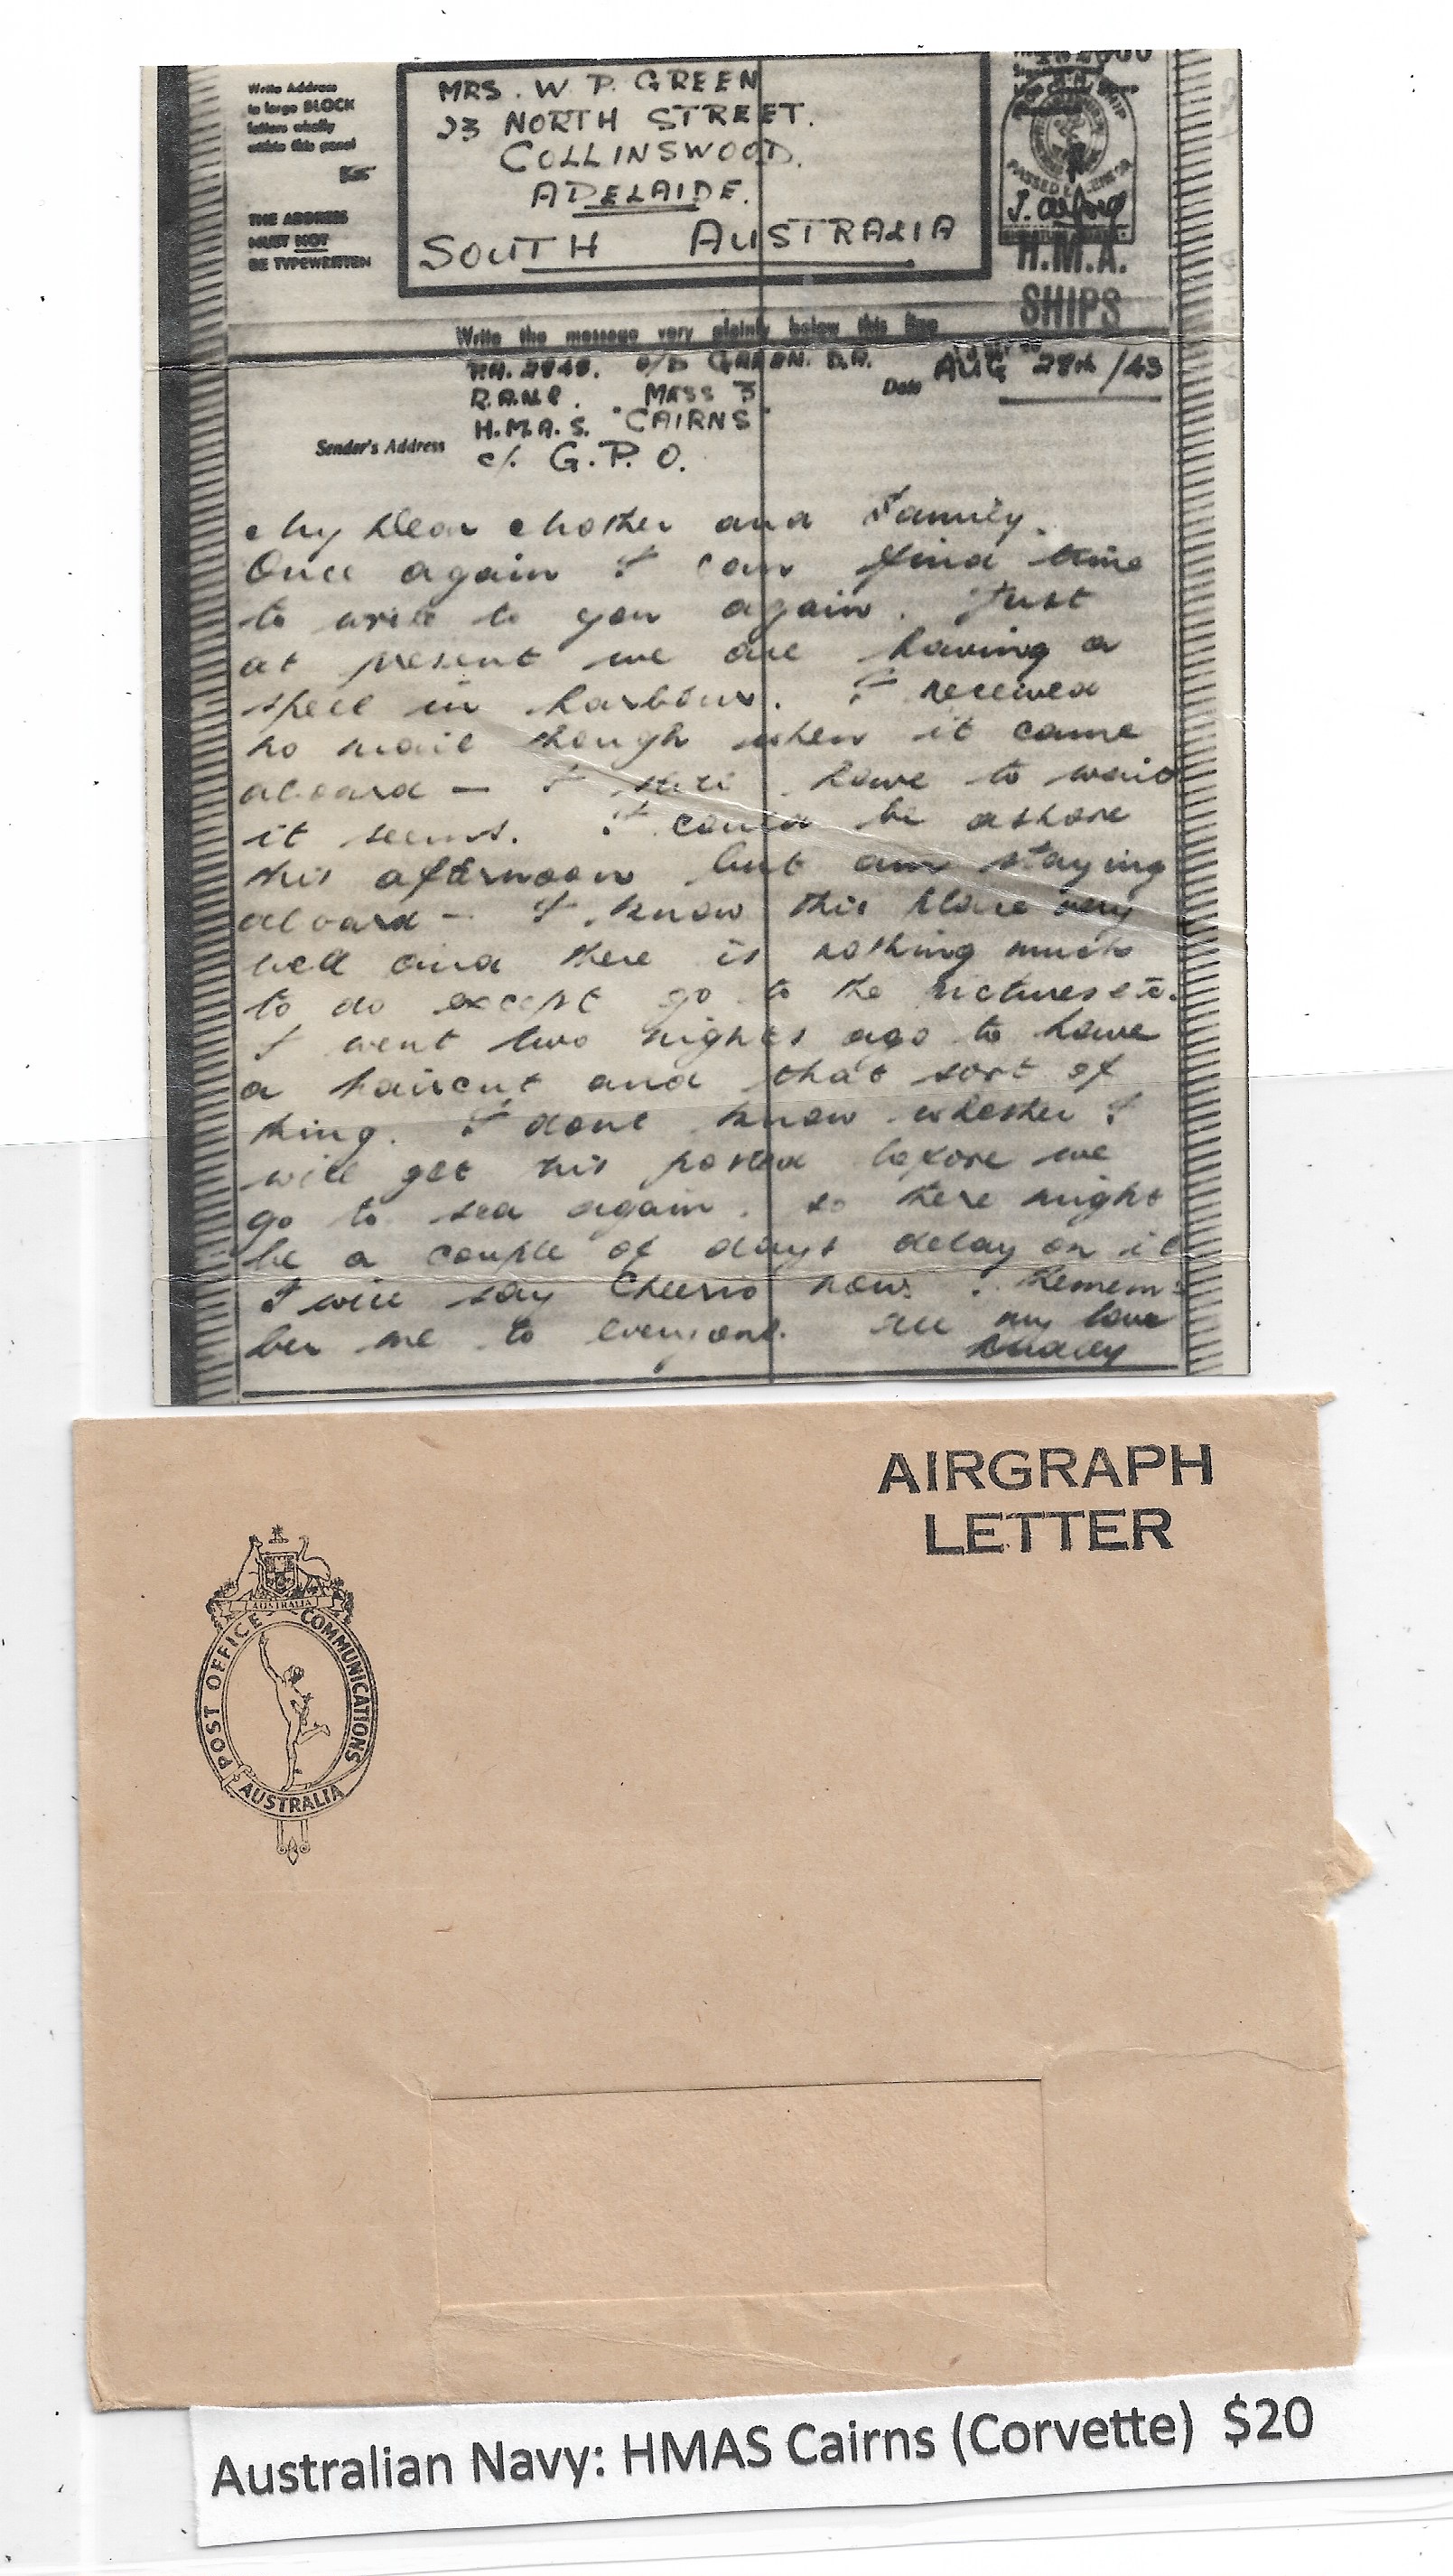 Write Address
in large BLOCK
letters wholly
within this panel
THE ADDRESS
MUST NOT
BE TYPEWRITTEN
MRS. W. P. GREEN
23 NORTH STREET.
COLLINSWOOD.
ADELAIDE.
SOUTH AUSTRALIA
PASSED
H.M.A.
SHIPS
Write the message very plainly below this line
GREEN. D.A.
R.A.N.R. MESS 3
H.M.A.S. "CAIRNS"
c/. G.P.O.
Sender's Address
Date AUG 28th/43
My Dear Mother and Family.
Once again I can find time
to write to you again. Just
at present we are having a
spell in harbour. I received
no mail though when it came
aboard – I still have to wait
it seems. I could be ashore
this afternoon but am staying
aboard – I know this place very
well and there is nothing much
to do except go to the pictures etc.
I went two nights ago to have
a haircut and that sort of
thing. I dont know whether I
will get this posted before we
go to sea again. so there might
be a couple of days delay on it
I will say Cheerio now. Remem-
ber me to everyone. All my love
AIRGRAPH
LETTER
AUSTRALIA
POST OFFICE COMMUNICATIONS
AUSTRALIA
Australian Navy: HMAS Cairns (Corvette) $20